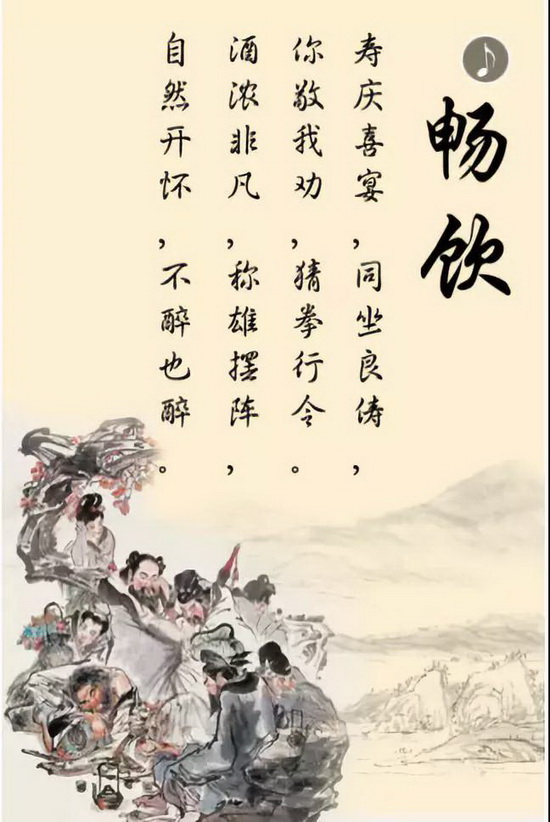 畅饮
寿庆喜宴,同坐良俦,
你敬我劝,猜拳行令。
酒浓非凡,称雄摆阵,
自然开怀,不醉也醉。